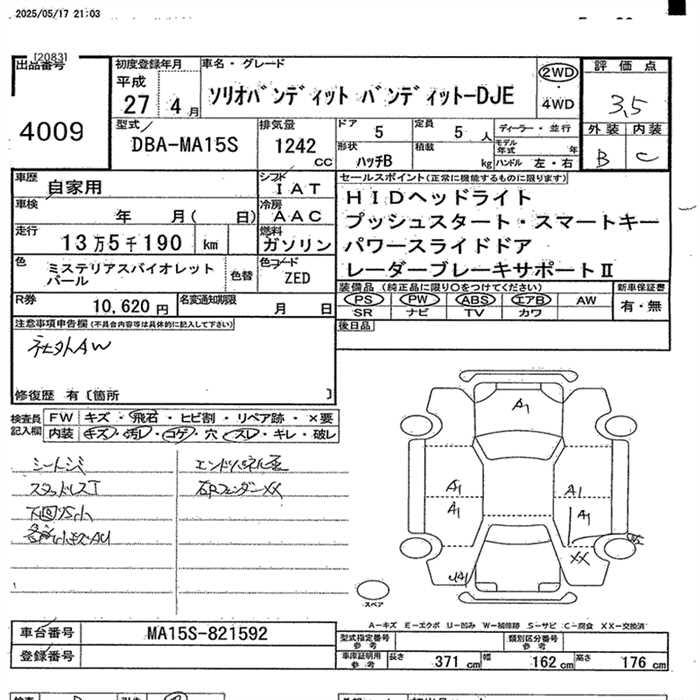 2025/05/17 21:03
[2083]
出品番号
4009
初度登録年月
平成
27 4月
車名・グレード
ソリオバンディット バンディット-DJE
2WD
4WD
評価点
3.5
外装 内装
B C
型式
DBA-MA15S
排気量
1242 cc
ドア 5
定員 5 人
形状 ハッチB
積載 kg
ディーラー・並行
モデル年式 年
ハンドル 左・右
車歴 自家用
シフト IAT
車検 年 月( 日)
冷房 AAC
走行 13万5千190 km
燃料 ガソリン
色 ミステリアスバイオレットパール
色替
色コード ZED
R券 10,620円
名変通知期限 月 日
セールスポイント(正常に機能するものに限ります)
HIDヘッドライト
プッシュスタート・スマートキー
パワースライドドア
レーダーブレーキサポートⅡ
装備品(純正品に限り○をつけてください)
新車保証書
PS PW ABS エアB AW
SR ナビ TV カワ
有・無
後日品
注意事項申告欄(不具合内容等は具体的に記入して下さい)
社外AW
修復歴 有〔箇所 〕
検査員記入欄
FW キズ・飛石・ヒビ割・リペア跡・×要
内装 キズ・汚レ・コゲ・穴・スレ・キレ・破レ
シートシミ
スタッドレスT
エンドパネル歪
右Fフェンダー××
A1
A1
A1
A1
A1
××
U4
スペア
A－キズ E－エクボ U－凹み W－補修跡 S－サビ C－腐食 XX－交換済
車台番号 MA15S-821592
登録番号
型式指定番号 参考
類別区分番号 参考
車庫証明用 参考
長さ 371 cm 幅 162 cm 高さ 176 cm